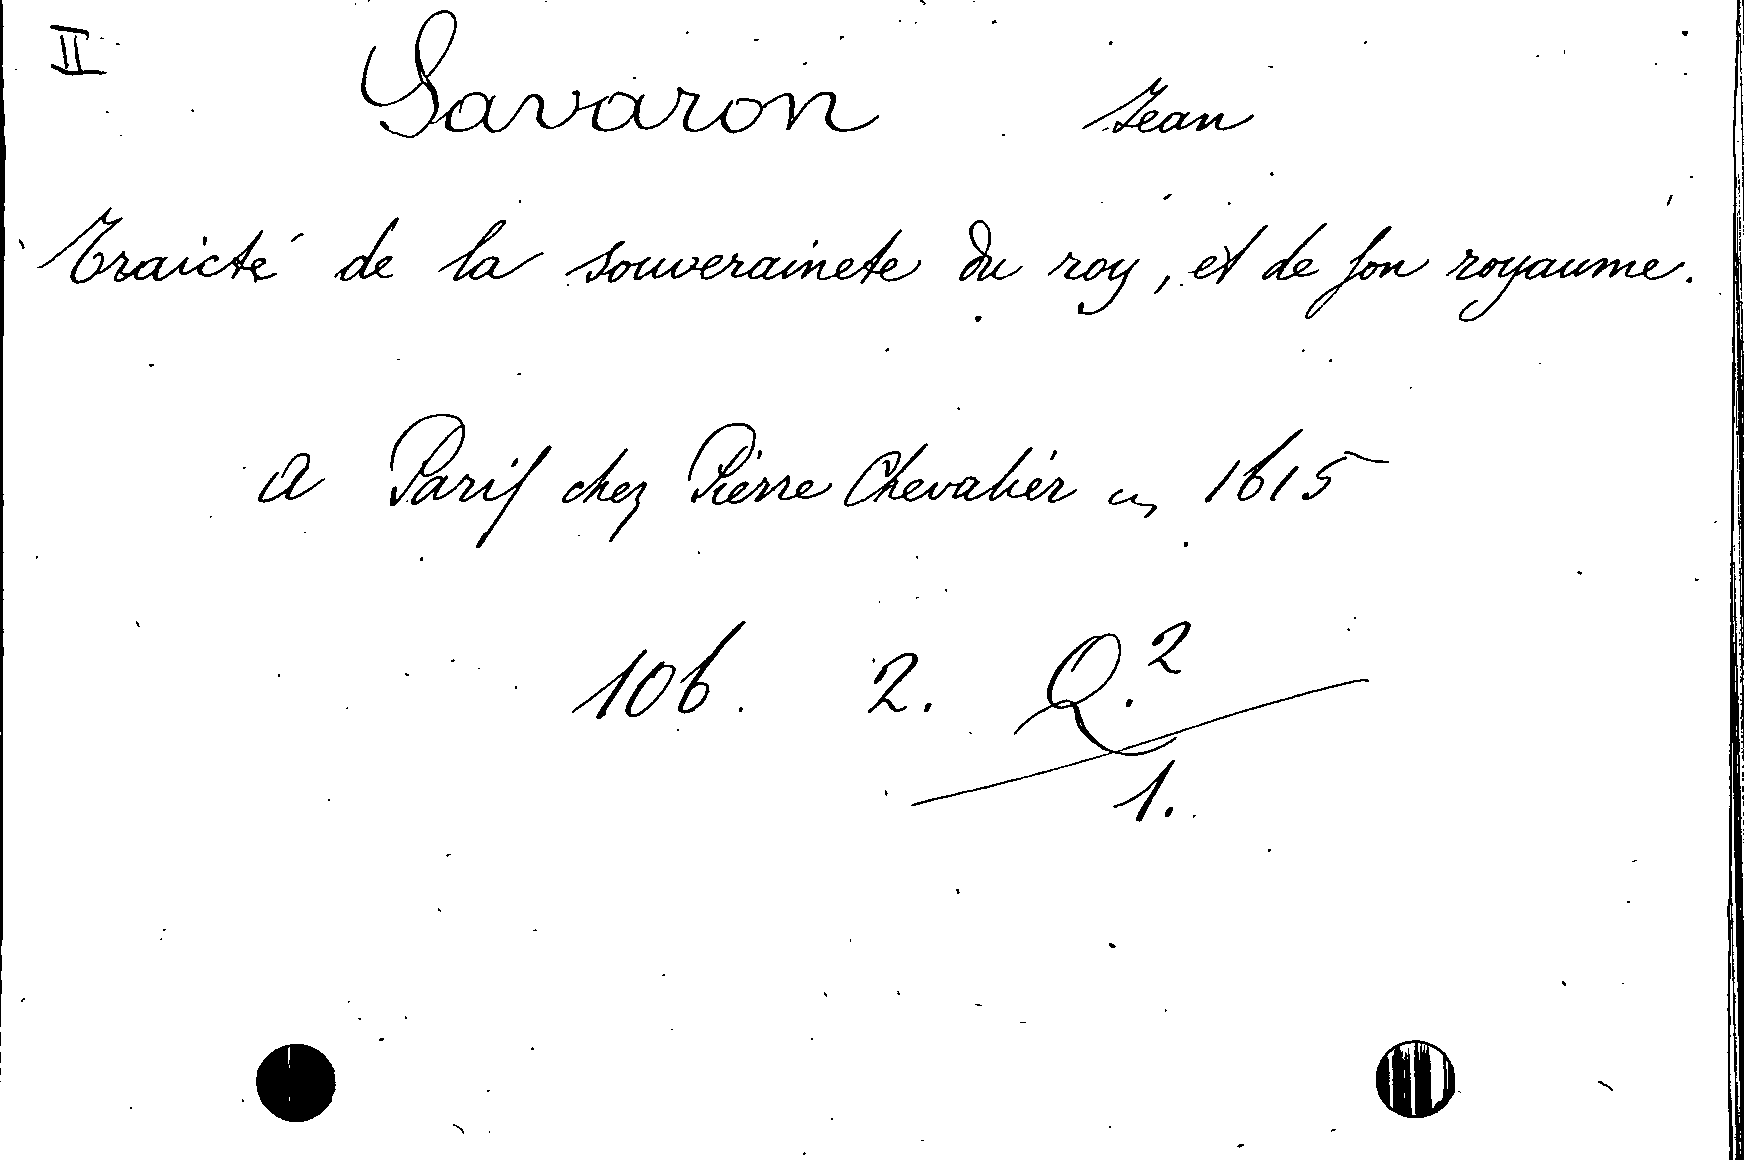 II
Savaron Jean
Traicté de la souverainete du roy, et de ſon royaume.
a Pariſ chez Pierre Chevalier en 1615
106. 2. Q.²
1.